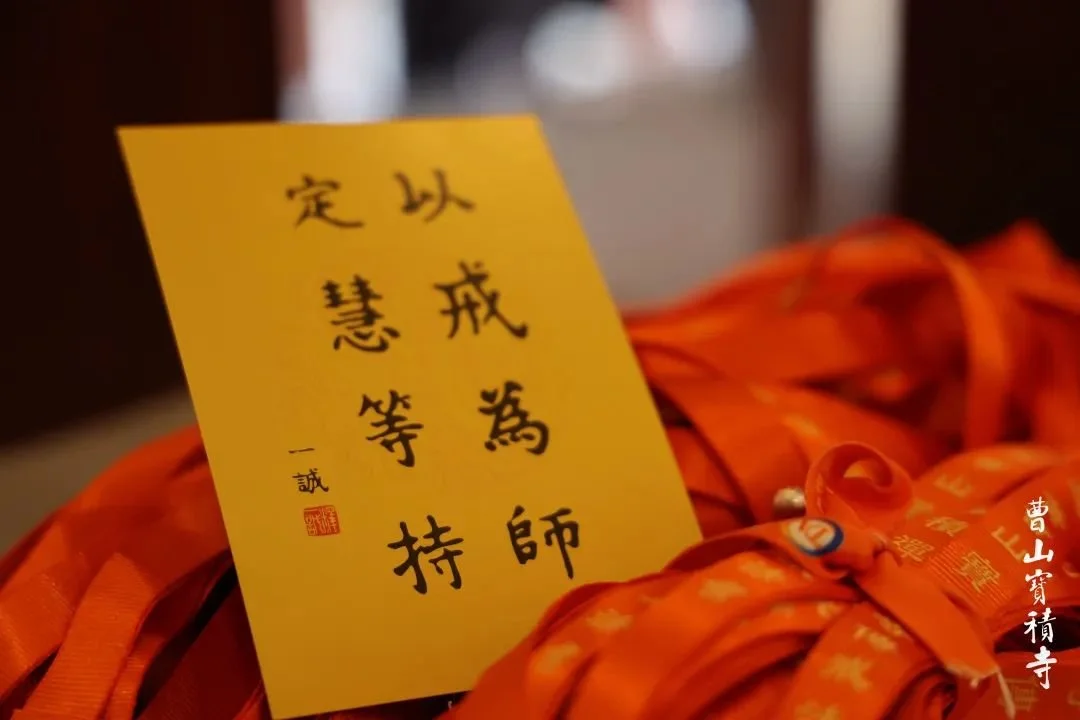 以戒為師
定慧等持
一誠
曹山寶積寺